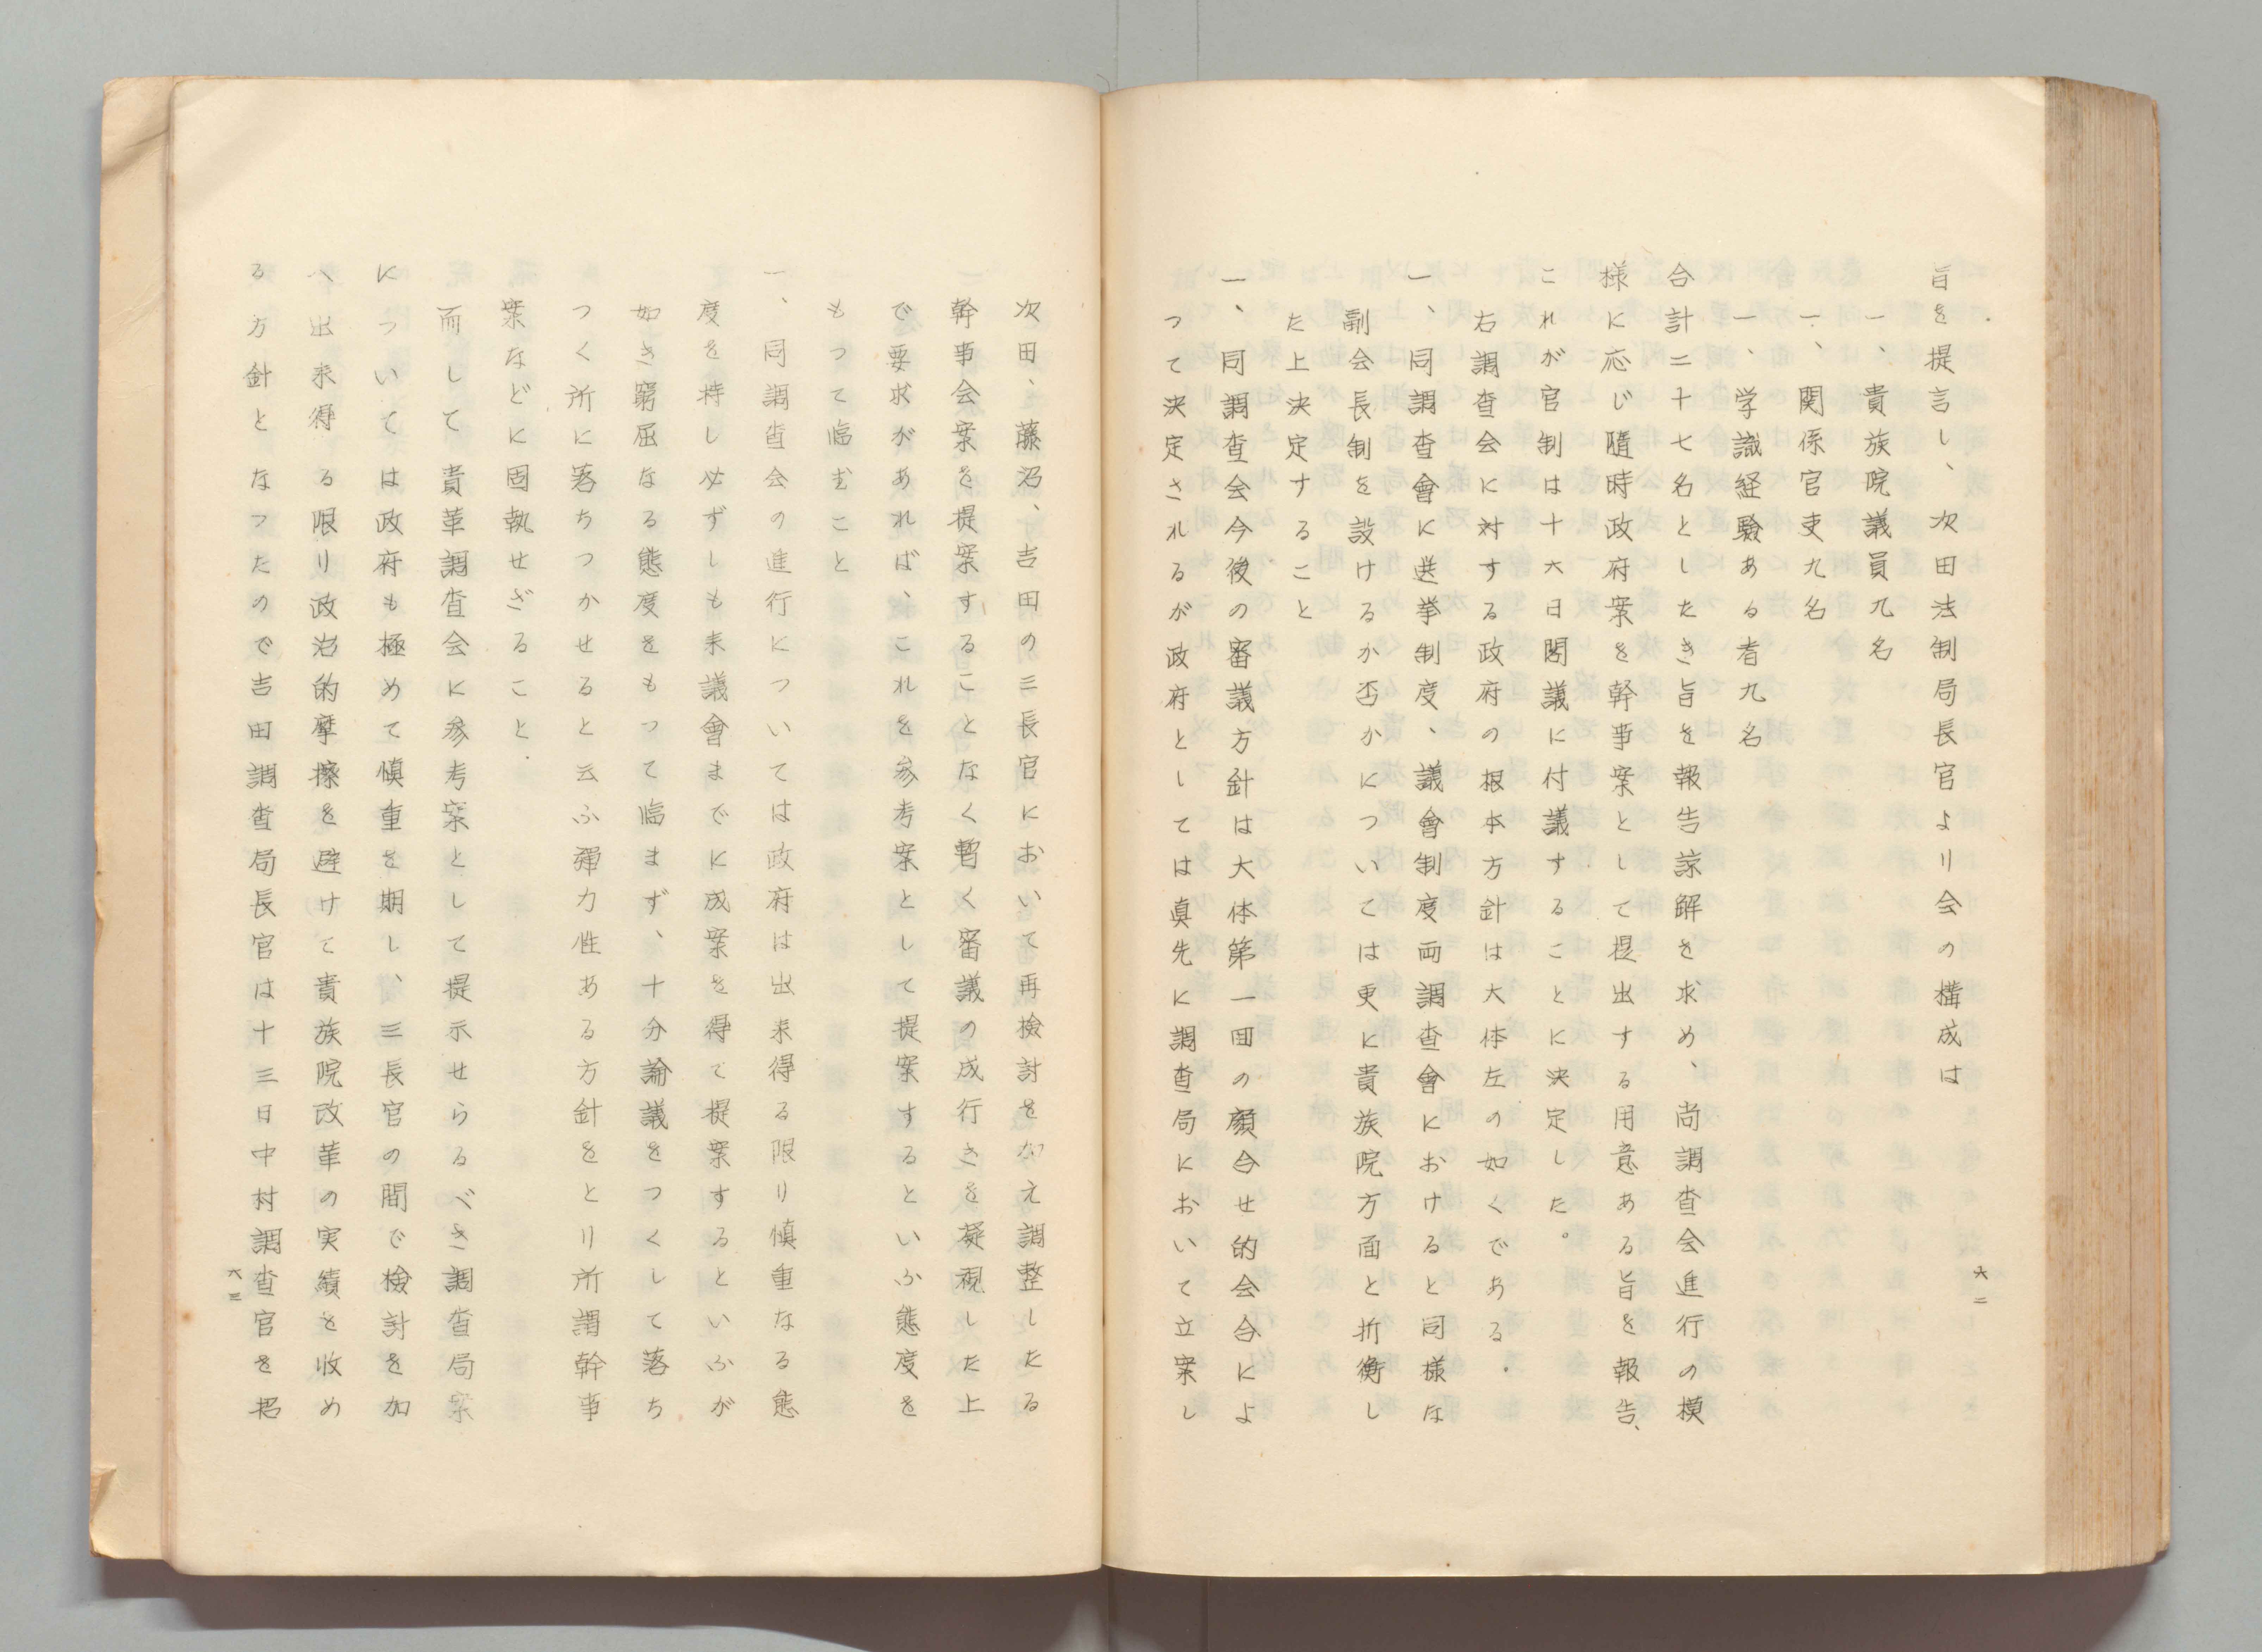 旨を提言し、次田法制局長官より会の構成は
一、貴族院議員九名
一、関係官吏九名
一、学識経験ある者九名
合計二十七名としたき旨を報告諒解を求め、尚調査会進行の模
様に応じ随時政府案を幹事案として提出する用意ある旨を報告、
これが官制は十六日閣議に付議することに決定した。
右調査会に対する政府の根本方針は大体左の如くである.
一、同調査會に選挙制度、議會制度両調査會におけると同様な
副会長制を設けるか否かについては更に貴族院方面と折衝し
た上決定すること
一、同調査会今後の審議方針は大体第一回の顔合せ的会合によ
つて決定されるが政府としては真先に調査局において立案し
六二
次田、藤沼、吉田の三長官において再検討を加え調整したる
幹事会案を提案することなく暫く審議の成行きを凝視した上
で要求があれば、これを参考案として提案するといふ態度を
もつて臨むこと
一、同調査会の進行については政府は出来得る限り慎重なる態
度を持し必ずしも来議會までに成案を得て提案するといふが
如き窮屈なる態度をもつて臨まず、十分論議をつくして落ち
つく所に落ちつかせると云ふ弾力性ある方針をとり所謂幹事
案などに固執せざること.
而して貴革調査会に参考案として提示せらるべき調査局案
については政府も極めて慎重を期し、三長官の間で検討を加
へ出来得る限り政治的摩擦を避けて貴族院改革の実績を収め
る方針となつたので吉田調査局長官は十三日中村調査官を招
六三